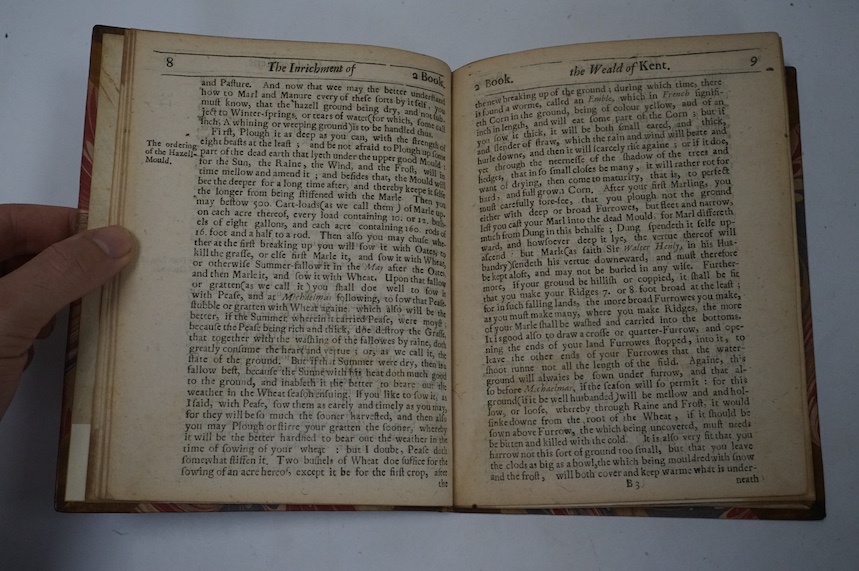 8 The Inrichment of 2 Book.
and Pasture. And now that wee may the better understand
how to Marl and Manure every of these sorts by it self, you
must know, that the hazell ground being dry, and not sub-
ject to Winter-springs, or teares of water (for which, some call
inch, A whining or weeping ground) is to be handled thus.
First, Plough it as deep as you can, with the strength of
eight beasts at the least ; and be not afraid to Plough up some
part of the dead earth that lyeth under the upper good Mould ;
for the Sun, the Raine, the Wind, and the Frost, will in
time mellow and amend it ; and besides that, the Mould will
bee the deeper for a long time after, and thereby keepe it self
the longer from being stiffened with the Marle Then you
may bestow 500. Cart-loads (as we call them) of Marle up-
on each acre thereof, every load containing 10. or 12. bush-
els of eight gallons, and each acre containing 160. rods of
16. foot and a half to a rod. Then also you may chuse whe-
ther at the first breaking up you will sow it with Oates, to
kill the grasse, or else first Marle it, and sow it with Wheat,
or otherwise Summer-fallow it in the May after the Oates,
and then Marle it, and sow it with Wheat. Upon that fallow
or gratten (as we call it) you shall doe well to sow it
with Pease, and at Michaelmas following, to sow that Pease
stubble or gratten with Wheat againe which also will be the
better, if the Summer wherein it carried Pease, were moyst ;
because the Pease being rich and thick, doe destroy the Grasse,
that together with the washing of the fallowes by raine, doth
greatly consume the heart and vertue ; or, as we call it, the
state of the ground. But if that Summer were dry, then is a
fallow best, because the Sunne with his heat doth much good
to the ground, and inableth it the better to beare out the
weather in the Wheat season ensuing. If you like to sow it, as
I said, with Pease, sow them as early and timely as you may,
for they will be so much the sooner harvested, and then also
you may Plough or stirre your gratten the sooner, whereby
it will be the better hardned to bear out the weather in the
time of sowing of your wheat : but I doubt, Pease doth
somewhat stiffen it. Two bushels of Wheat doe suffice for the
sowing of an acre hereof, except it be for the first crop, after
the
The ordering
of the Hazell-
Mould.
2 Book. the Weald of Kent. 9
the new breaking up of the ground ; during which time, there
is found a worme, called an Emble, which in French signifi-
eth Corn in the ground, being of colour yellow, and of an
inch in length, and will eat some part of the Corn : but if
you sow it thick, it will be both small eared, and thick,
and slender of straw, which the rain and wind will beate and
hurle downe, and then it will scarcely rise againe ; or if it doe,
yet through the neernesse of the shadow of the trees and
hedges, that in so small closes be many, it will rather rot for
want of drying, then come to maturity, that is, to perfect
hard, and full grown Corn. After your first Marling, you
must carefully fore-see, that you plough not the ground
either with deep or broad Furrowes, but fleet and narrow,
lest you cast your Marl into the dead Mould. for Marl differeth
much from Dung in this behalfe ; Dung spendeth it selfe up-
ward, and howsoever deep it lye, the vertue thereof will
ascend but Mark (as saith Sir Walter Henly, in his Hus-
bandry) sendeth his vertue downeward, and must therefore
be kept aloft, and may not be buried in any wise. Further-
more, if your ground be hillish or coppied, it shall be fit
that you make your Ridges 7. or 8. foot broad at the least ;
for in such falling lands, the more broad Furrowes you make,
as you must make many, where you make Ridges, the more
of your Marle shall be washed and carried into the bottoms.
It is good also to draw a crosse or quarter-Furrow, and ope-
ning the ends of your land Furrowes stopped, into it, to
leave the other ends of your Furrowes that the water-
shoot runne not all the length of the field. Againe, this
ground will alwaies be sown under furrow, and that al-
so before Michaelmas, if the season will so permit : for this
ground (if it be well husbanded) will be mellow and and hol-
low, or loose, whereby through Raine and Frost it would
sinke downe from the root of the Wheat, if it should be
sown above Furrow, the which being uncovered, must needs
be bitten and killed with the cold. It is also very fit that you
harrow not this sort of ground too small, but that you leave
the clods as big as a bowl, the which being mouldred with snow
and the frost, will both cover and keep warme what is under-
B 3. neath